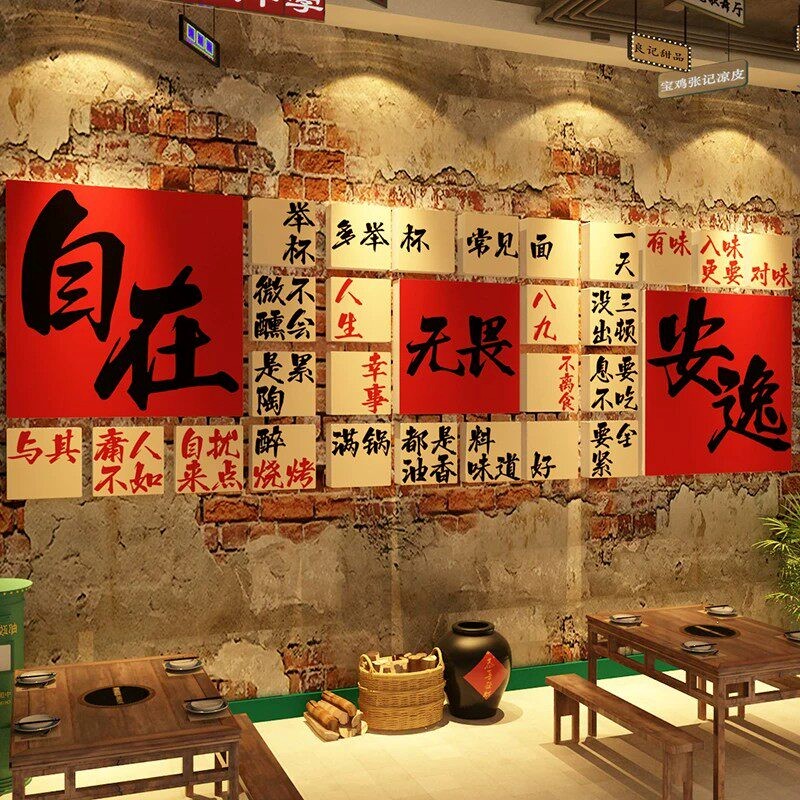 良记甜品
宝鸡张记凉皮
自在
举
杯
多举
杯
常见
面
一
天
有味
入味
更要对味
微不
醺会
人
生
无畏
八
九
没三
出顿
安逸
是累
陶
幸
事
不离食
息要
不吃
与其
庸人
不如
自扰
来点
醉
烧烤
满锅
都是
油香
料
味道
好
要全
紧